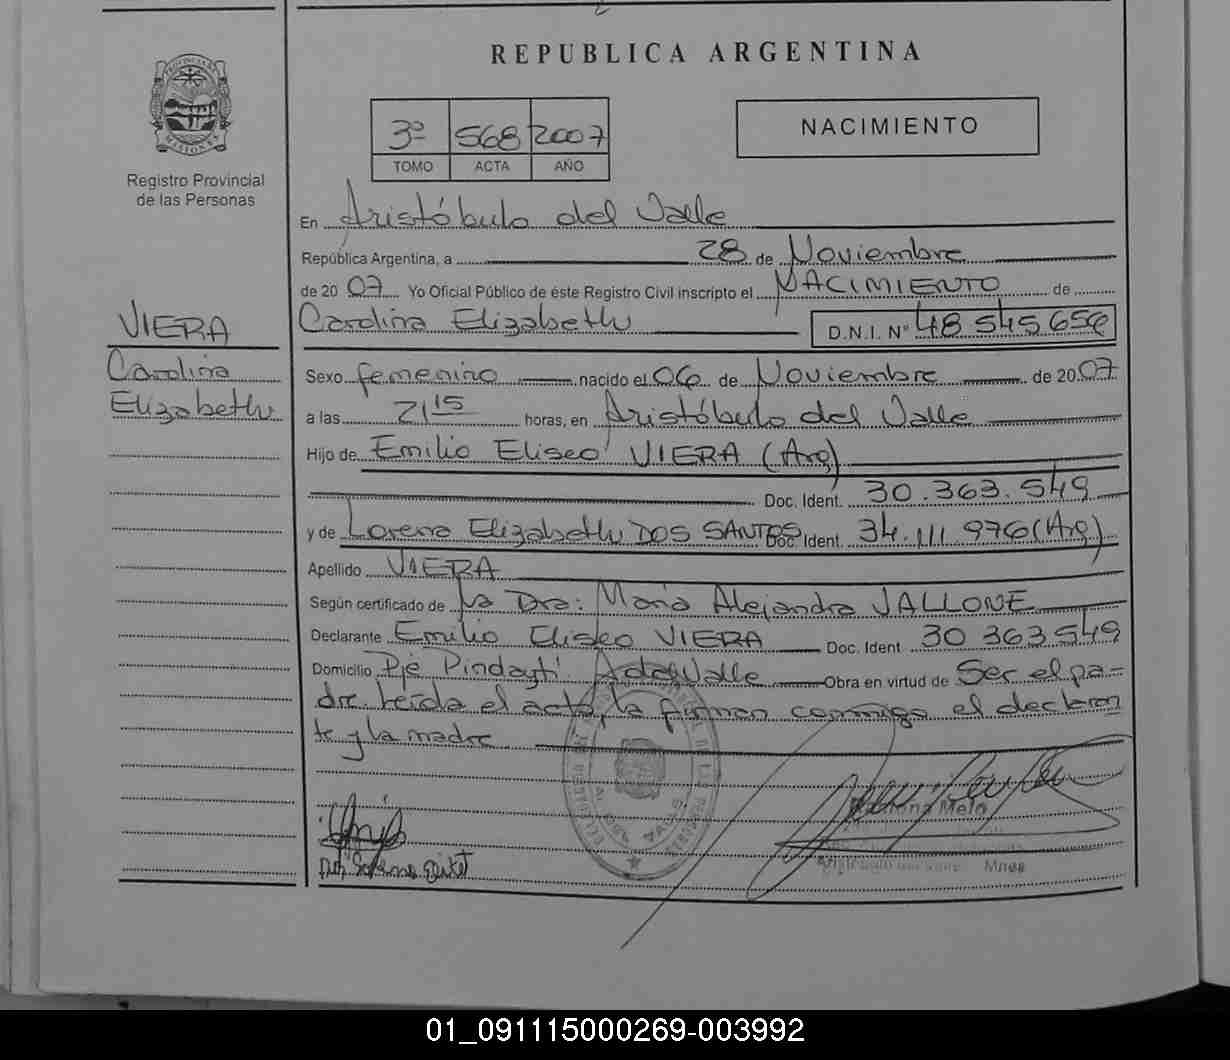 REPUBLICA ARGENTINA
PROVINCIA DE
MISIONES
Registro Provincial
de las Personas
3º 568 2007
TOMO ACTA AÑO
NACIMIENTO
En Aristóbulo del Valle
República Argentina, a 28 de Noviembre
de 20 07 Yo Oficial Público de éste Registro Civil inscripto el NACIMIENTO de
Carolina Elizabeth D.N.I. Nº 48 545 656
VIERA
Carolina
Elizabeth
Sexo femenino nacido el 06 de Noviembre de 20 07
a las 21 15 horas, en Aristóbulo del Valle
Hijo de Emilio Eliseo VIERA (Arg)
Doc. Ident. 30.363.549
y de Lorena Elizabeth DOS SANTOS Doc. Ident. 34.111.976 (Arg)
Apellido VIERA
Según certificado de La Dra: María Alejandra VALLONE
Declarante Emilio Eliseo VIERA Doc. Ident. 30 363 549
Domicilio Pje Pindaytí A del Valle Obra en virtud de Ser el pa-
dre leída el acta, la firman conmigo el declaran
te y la madre
Ramona Melo
Mnes
01_091115000269-003992